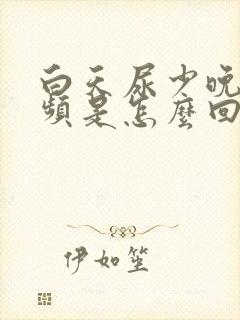 白天尿少晚
頻是怎麼回
伊如笙